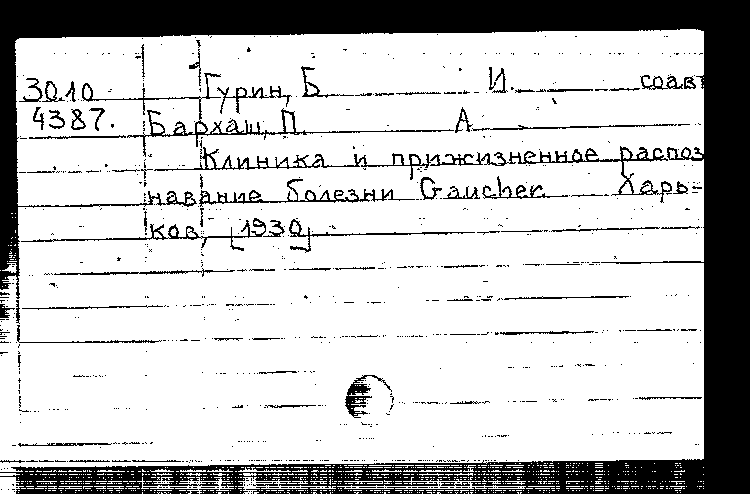 30.10 Гурин, Б. И. соавт
4387. Бархаш, П. А.
Клиника и прижизненное распоз
навание болезни Gaucher. Харь=
ков, [1930]